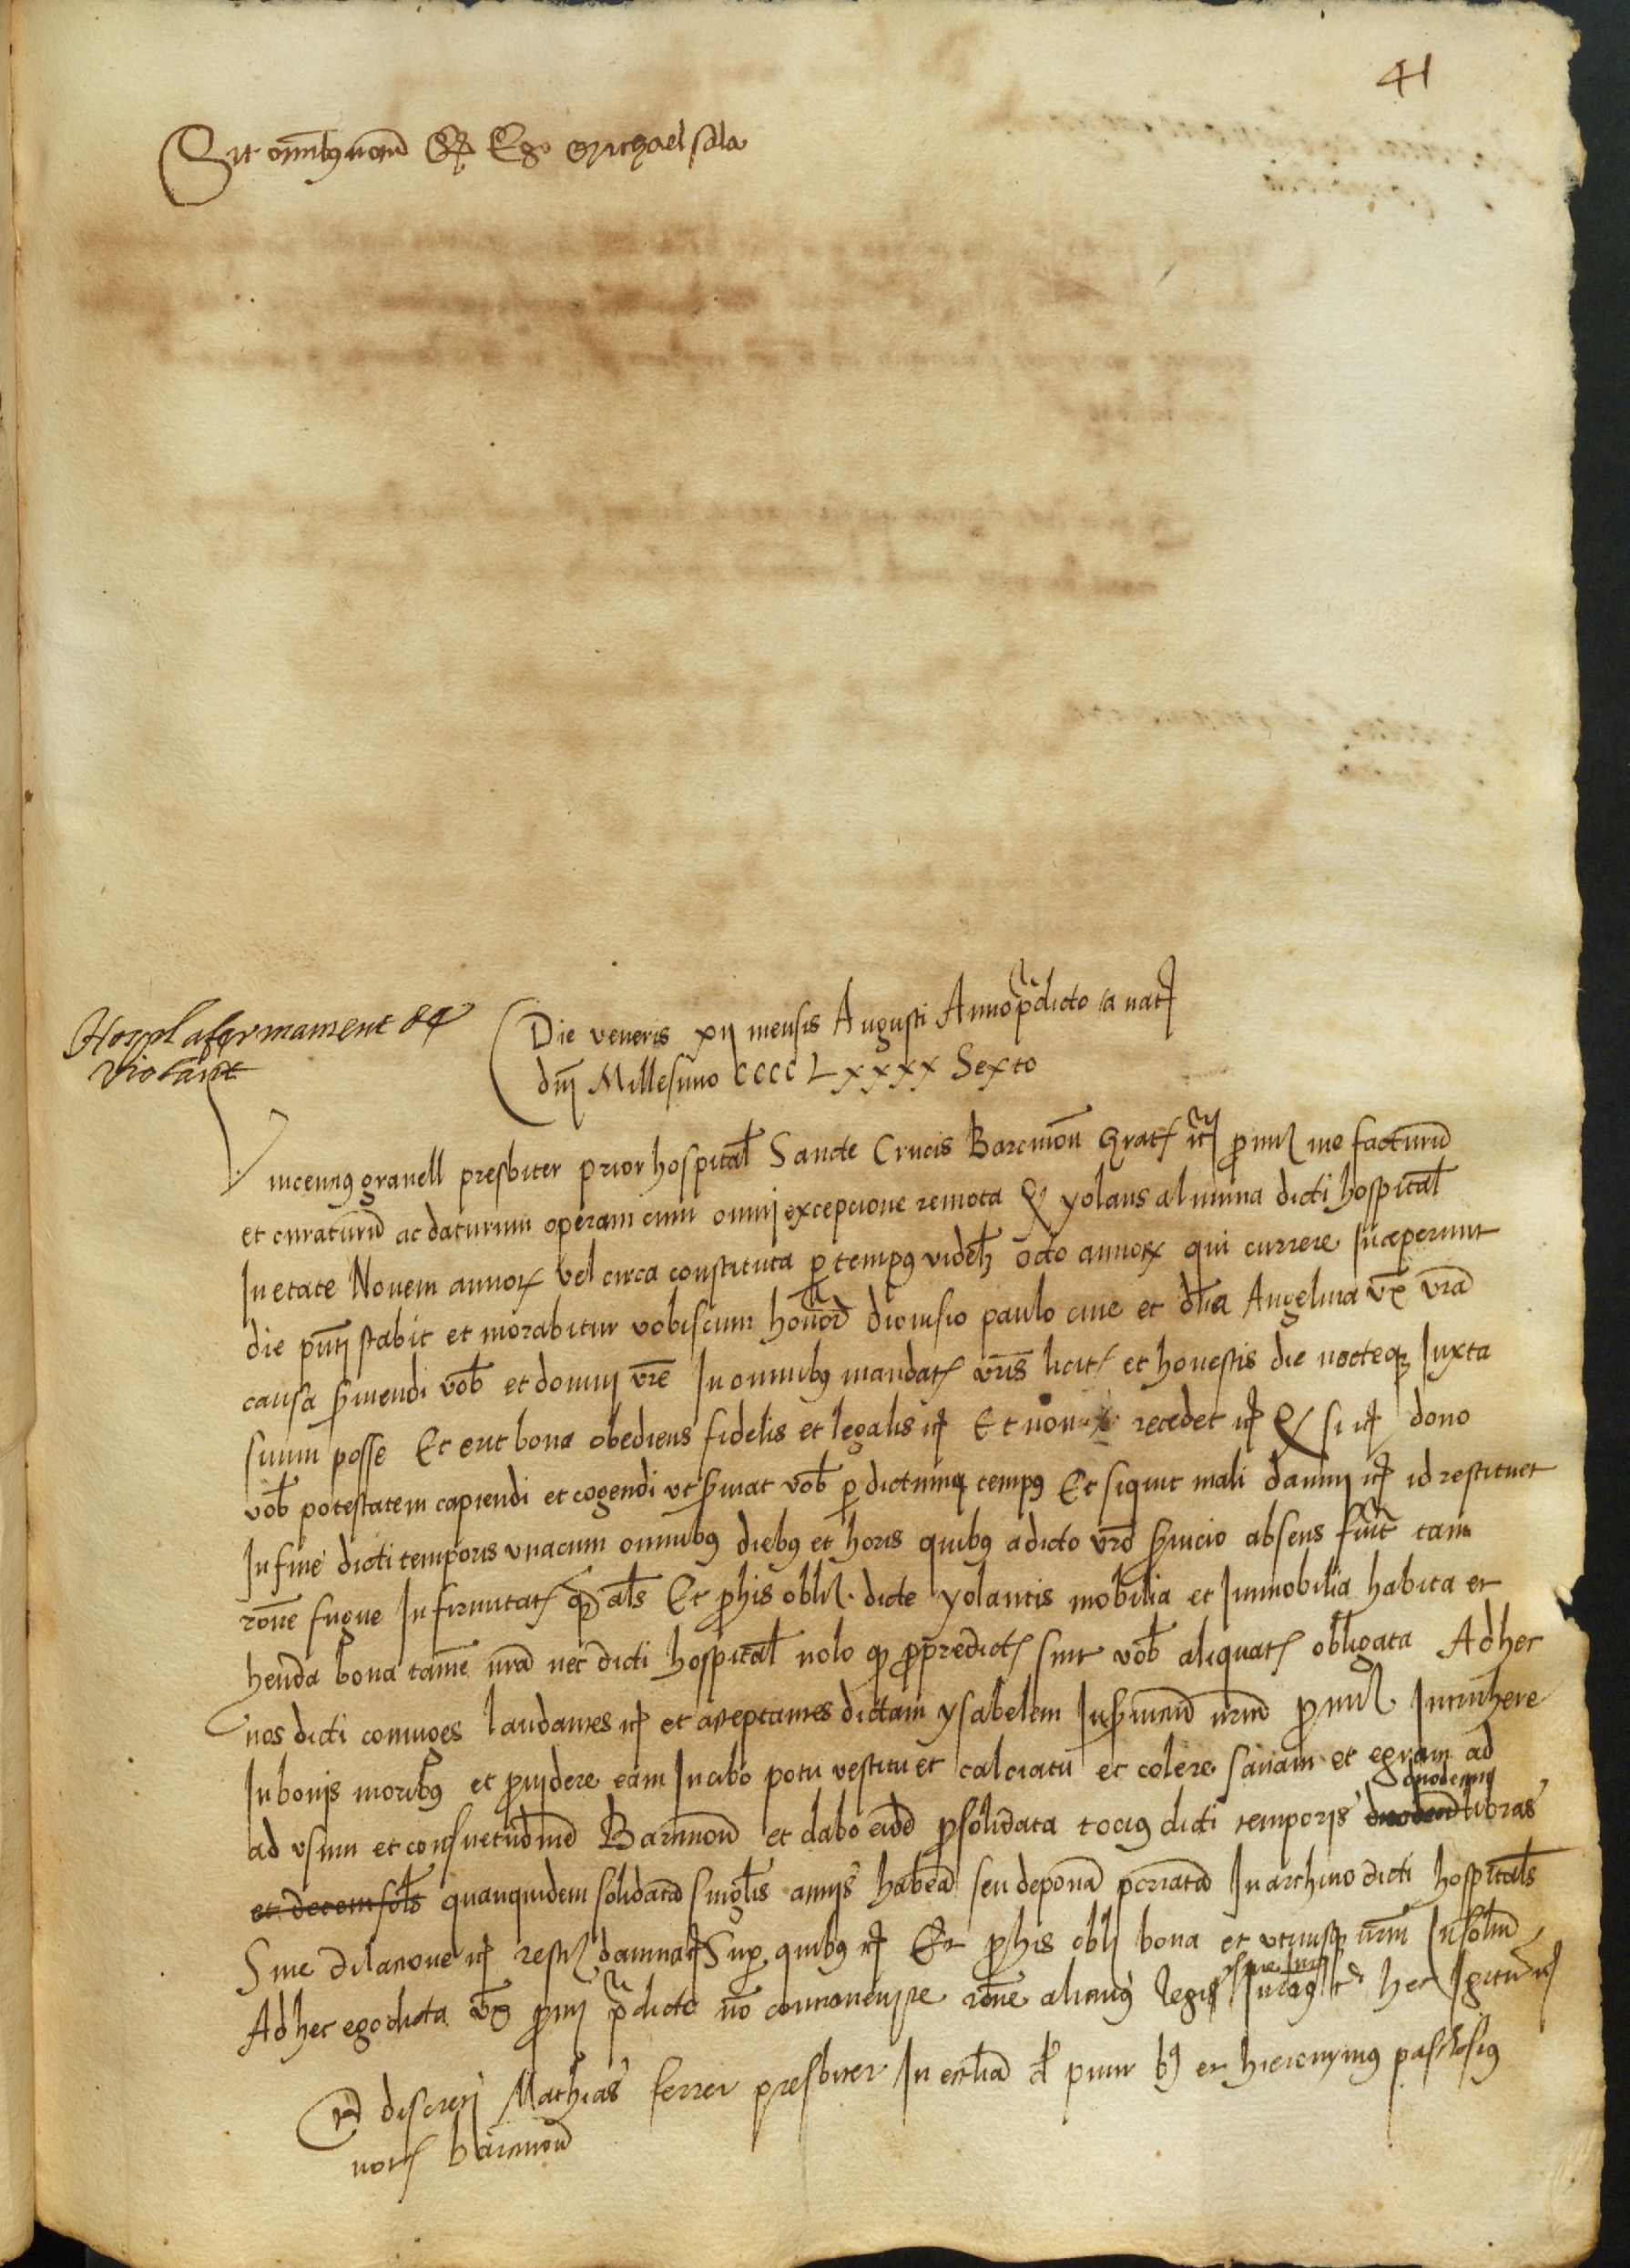 41
Sit omnibus notum Qd Ego Michael sala
Hospl afermament de
Violant
Die veneris xij mensis Augusti Anno predicto a natj
dnj Millesimo CCCC Lxxxx Sexto
Vincencius granell presbiter prior hospital Sancte Crucis Barcinon Gratis etc promit me facturum
et curaturum ac daturum operam cum omnj excepcione remota Qd yolans alumna dicti hospital
In etate Novem annorum vel circa constituta per tempus videlz octo annorum qui currere Inceperunt
die pntj stabit et morabitur vobiscum honor dionisio paulo cive et dna Angelina ux vra
causa serviendi vob et domuj vre In omnibus mandatis vris licitis et honestis die nocteque Iuxta
suum posse Et erit bona obediens fidelis et legalis etc Et non recedet etc Qd si etc dono
vob potestatem capiendi et cogendi ut serviat vob per dictum tempus Et siquit mali damnj etc id restituet
In fine dicti temporis unacum omnibus diebus et horis quibus a dicto vro servicio absens fuit tam
rone fugue Infirmitatis quam als Et pro his obli dicte yolantis mobilia et Inmobilia habita et
henda bona tamen mea nec dicti hospital nolo qd pro predictis sint vob aliquatis obligata Ad hec
nos dicti coniuges laudantes etc et acceptantes dictam ysabelem In servicium nrum promit Intruhere
In bonis moribus et providere eam In cibo potu vestitu et calciatu et colere sanam et egram ad
ad usum et consuetudinem Barcinon et dabo eidem pro solidata tocius dicti temporis duodecim duodecim libras
et decem sols quanquidem solidatam singulis annis habeam seu deponam portatam In archivo dicti hospitals
Sine dilacione etc restit damnatj Super quibus etc Et pro his obli bona et utriusque nrum Insolm
Ad hec ego dicta ux promj predicto non contravenire rone alicuius legis Iuraus etc hec Igitur etc
discretj Mathias ferrer presbiter In ecclia et hieronymus
not barcinon